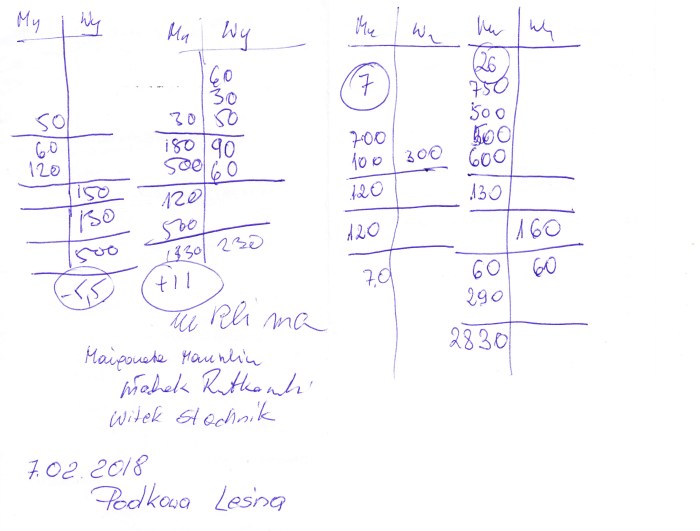 My Wy
50
60
120
150
130
500
-5,5
My Wy
60
30
30 50
180 90
500 60
120
500
1330 230
+11
Wy
7
700
100 300
120
120
70
26
750
500
500
600
130
160
60 60
290
2830
Małgorzata
Włodek Rutkowski
Witek Stachnik
7.02.2018
Podkowa Leśna